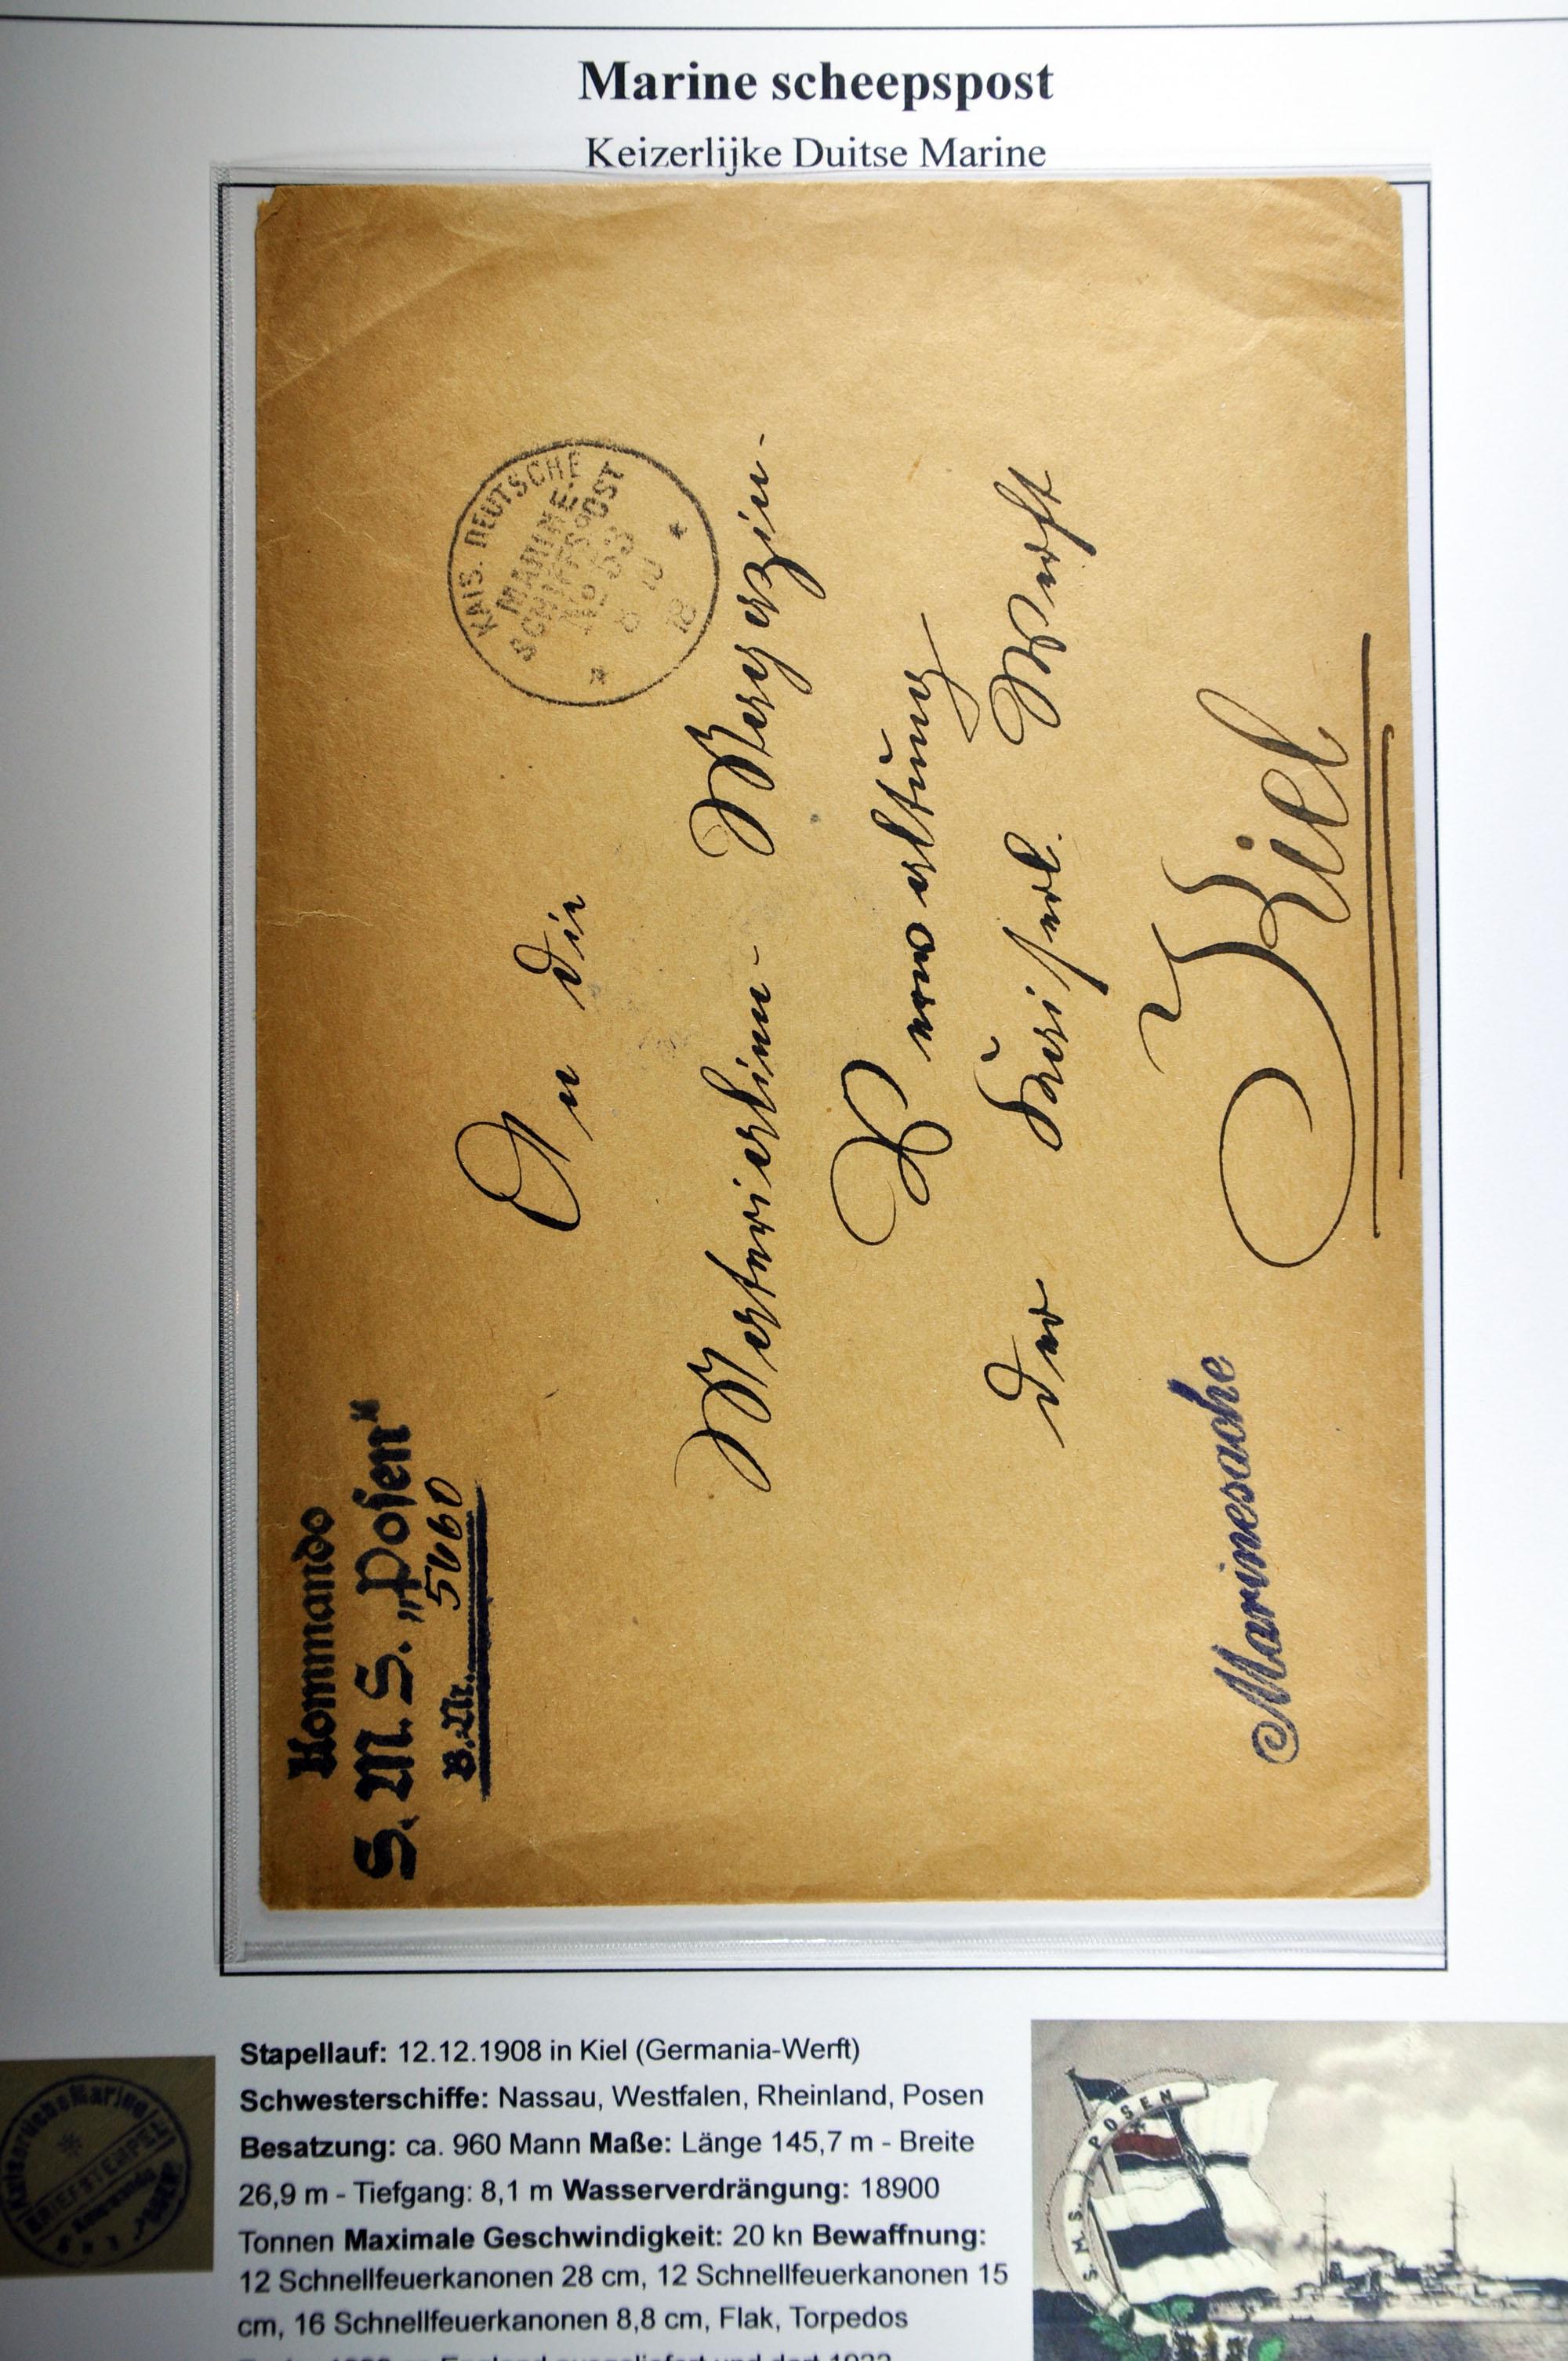 Marine scheepspost
Keizerlijke Duitse Marine
Kommando
S. M. S. „Posen“
B.-Nr. 5660
KAIS. DEUTSCHE
MARINE-
SCHIFFSPOST
No 53
8 10
18
An die
Materialien- Magazin-
Verwaltung
der Kaiserl. Werft
Kiel
Marinesache
Stapellauf: 12.12.1908 in Kiel (Germania-Werft)
Schwesterschiffe: Nassau, Westfalen, Rheinland, Posen
Besatzung: ca. 960 Mann Maße: Länge 145,7 m - Breite
26,9 m - Tiefgang: 8,1 m Wasserverdrängung: 18900
Tonnen Maximale Geschwindigkeit: 20 kn Bewaffnung:
12 Schnellfeuerkanonen 28 cm, 12 Schnellfeuerkanonen 15
cm, 16 Schnellfeuerkanonen 8,8 cm, Flak, Torpedos
BRIEFSTEMPEL
S. M. S. POSEN